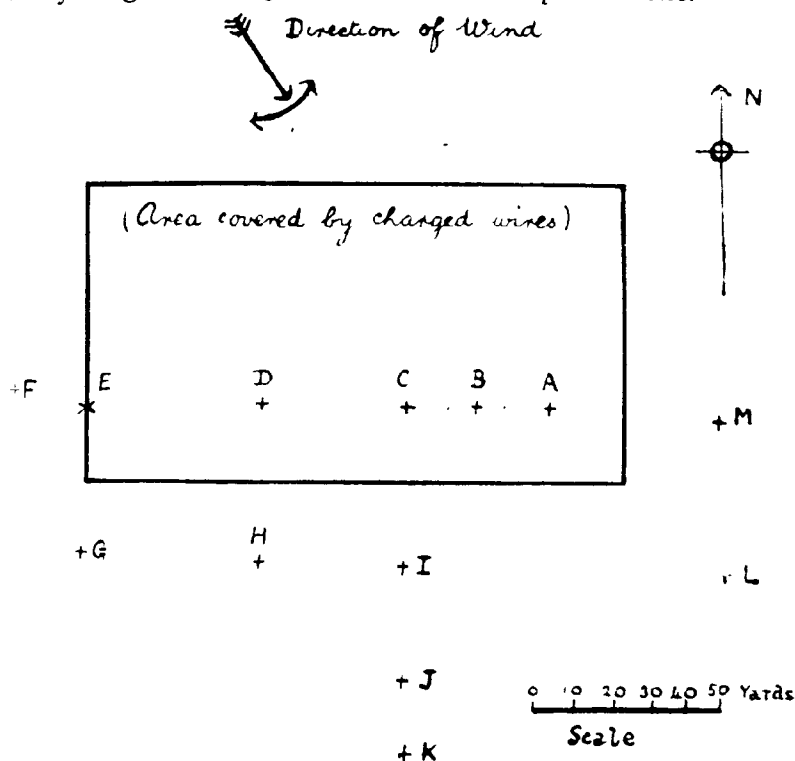 Direction of Wind
N
(Area covered by charged wires)
+F E D C B A
M
+G H +I L
+J
0 10 20 30 40 50 Yards
Scale
+K